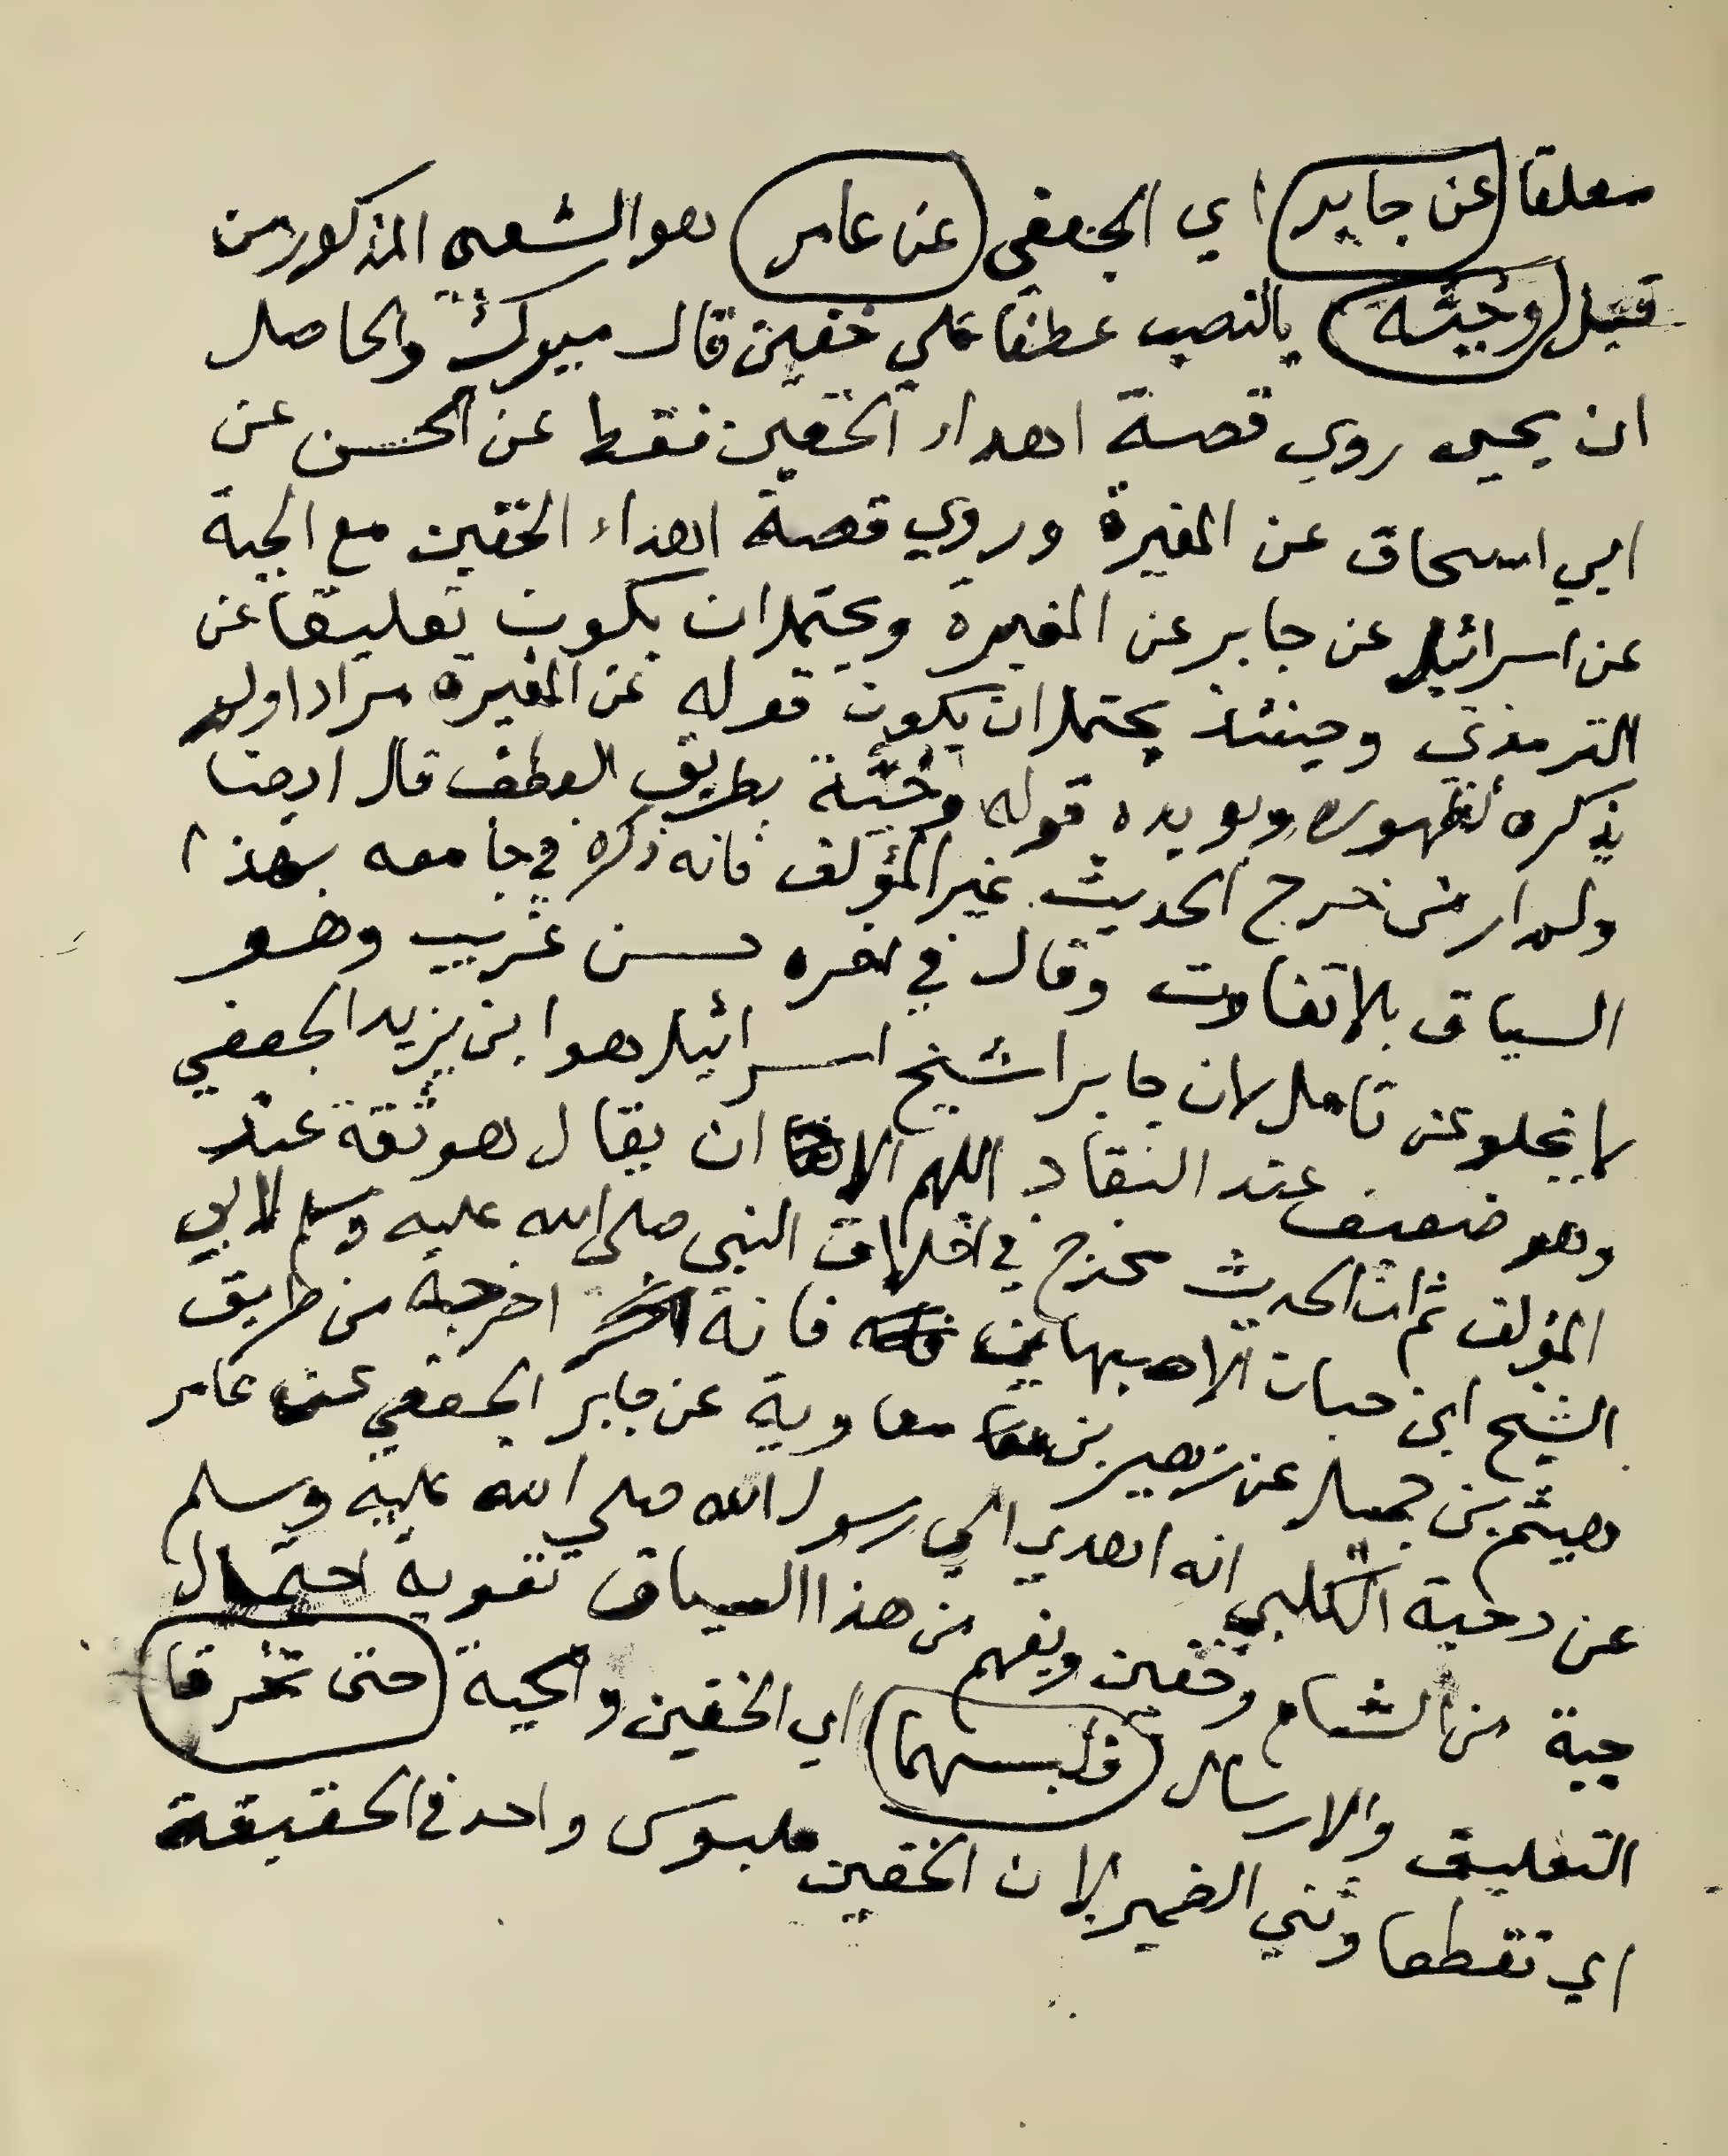 معلقا عن جابر اي الجعفي عن عامر هو الشعبي المذكور من
قبل وجبة بالنصب عطفا على خفين قال ميرك والحاصل
ان يحيى روي قصة اهداء الخفين فقط عن الحسن عن
ابي اسحاق عن المغيرة وروي قصة اهداء الخفين مع الجبة
عن اسرائيل عن جابر عن المغيرة ويحتمل ان يكون تعليقا عن
الترمذي وحينئذ يحتمل ان يكون قوله عن المغيرة مرادا ولم
يذكره لظهوره ويويده قوله وجبة بطريق العطف قال ايضا
ولم ار من خرج الحديث غير المؤلف فانه ذكره في جامعه بهذا
السياق بلا تفاوت وقال في اخره حسن غريب وهو
لا يخلو عن تامل لان جابرا شيخ اسرائيل هو ابن يزيد الجعفي
وهو ضعيف عند النقاد اللهم الا ان يقال هو ثقة عند
المؤلف ثم ان الحديث مخرج في اخلاق النبي صلى الله عليه وسلم لابي
الشيخ ابن حبان الاصبهاني فانه اخرجه من طريق
هيثم بن جميل عن زهير بن معاوية عن جابر الجعفي عن عامر
عن دحية الكلبي انه اهدي الي رسول الله صلي الله عليه وسلم
جبة من الشام وخفين ويفهم من هذا السياق تقوية احتمال
التعليق والارسال فلبسهما اي الخفين والجبة حتى تخرقا
اي تقطعا وثني الضمير لان الخفين ملبوس واحد في الحقيقة